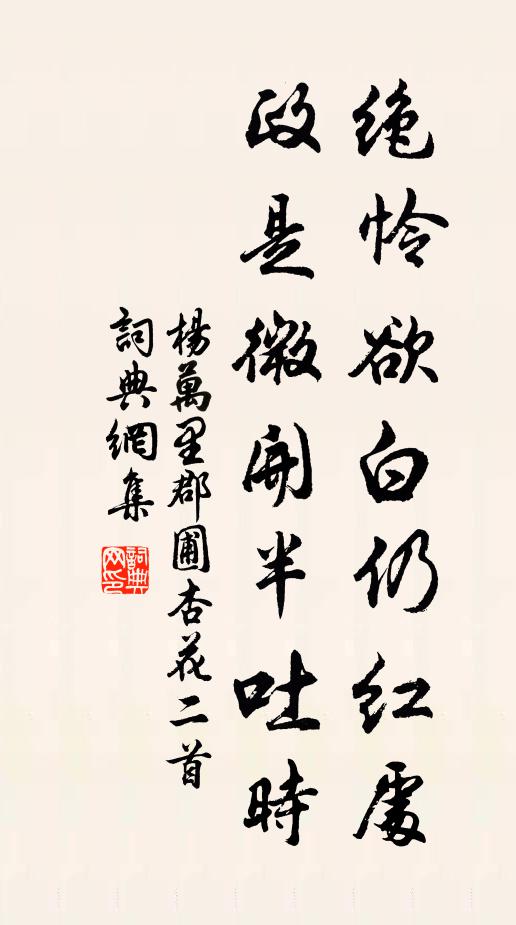 绝怜欲白仍红處
政是微開半吐時
楊萬里郡圃杏花二首
詞典網集
詞典网印